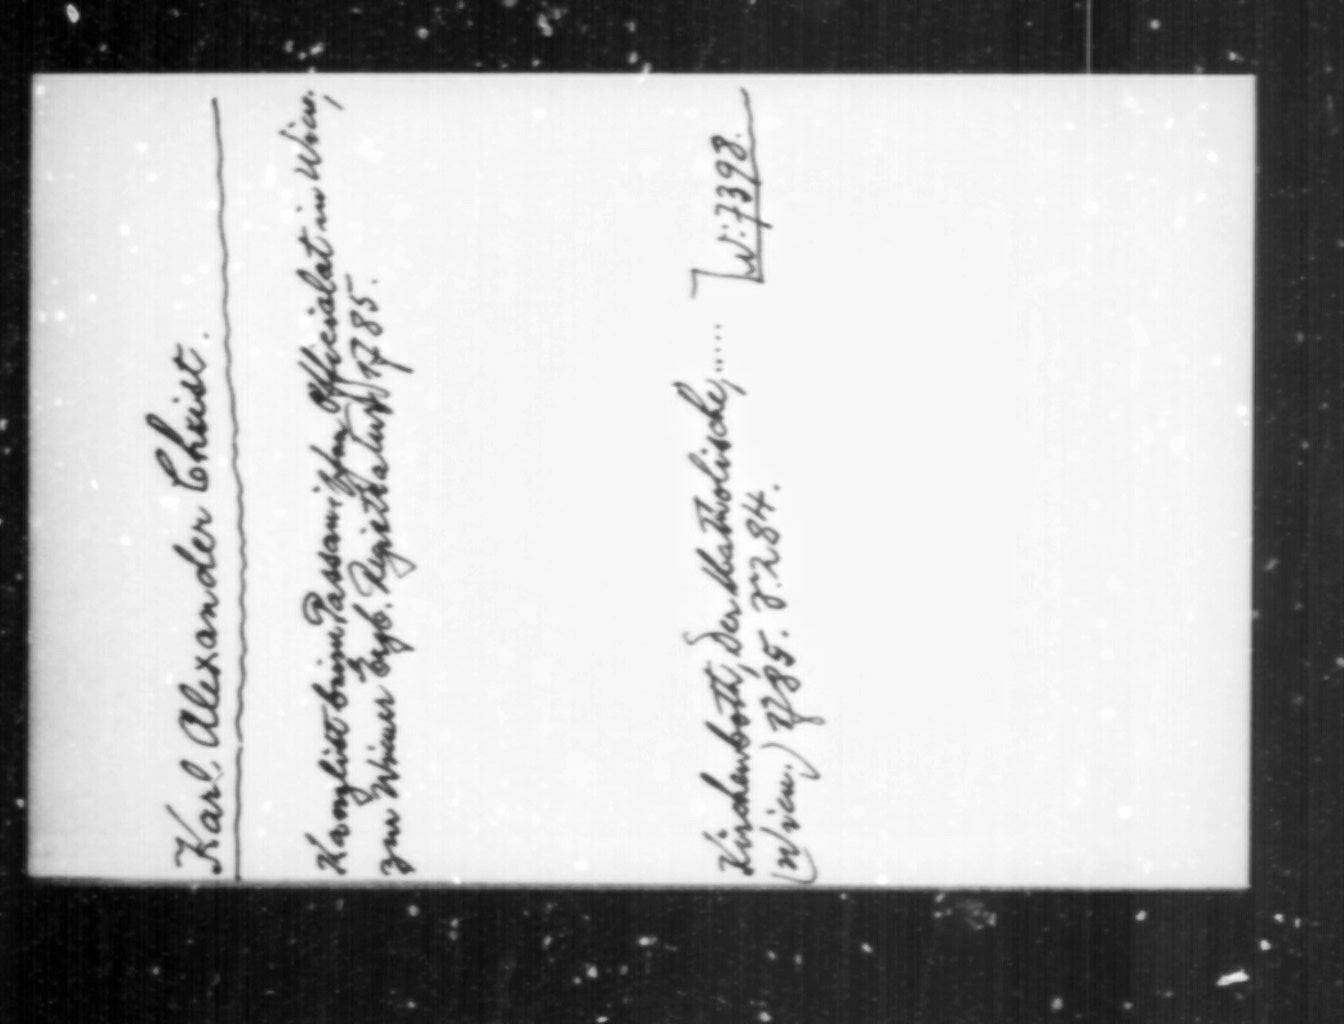 Karl Alexander Christ.
Kanzlist beim Passauischen Officialat in Wien,
zur Wiener Erzb. Registratur 1785.
Kirchenbotth, Der Katholische, ......
W: 7398.
(Wien.) 1785. S. 284.